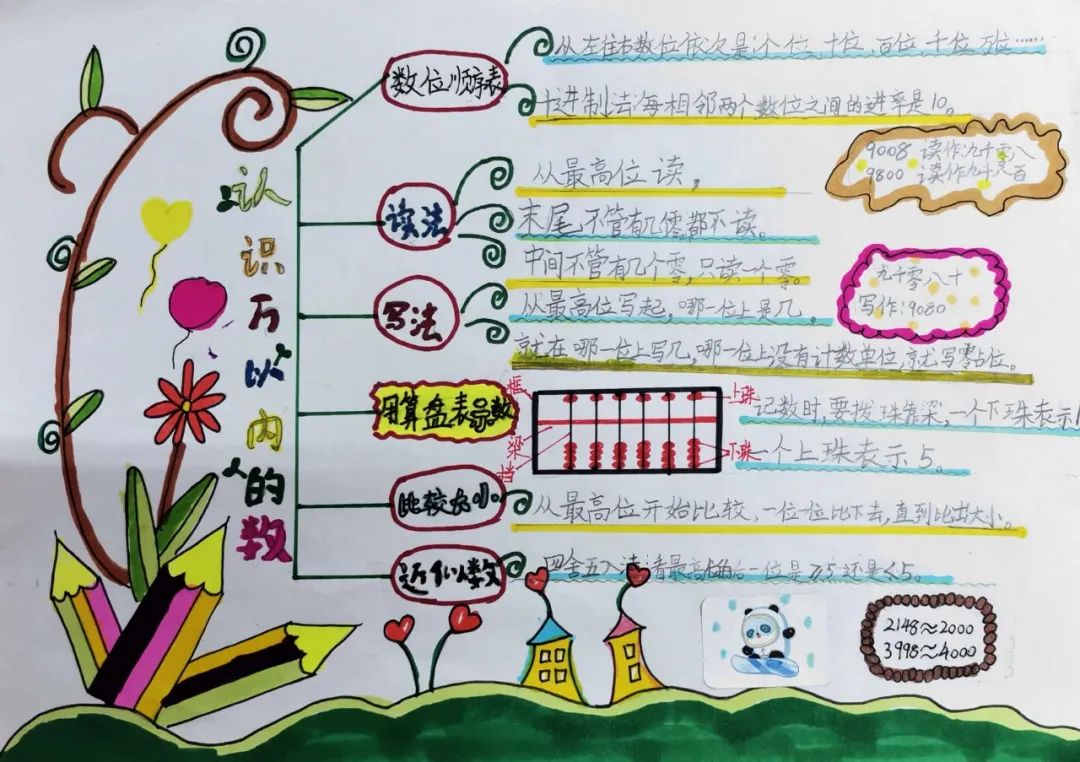 认识万以内的数
数位顺序表
从左往右数位依次是:个位、十位、百位、千位、万位……
十进制法:每相邻两个数位之间的进率是10。
9008 读作:九千零八
9800 读作:九千八百
读法
从最高位读,
末尾不管有几个零,都不读。
中间不管有几个零,只读一个零。
九千零八十
写作:9080
写法
从最高位写起,哪一位上是几,
就在哪一位上写几,哪一位上没有计数单位,就写零占位。
用算盘表示数
框
梁
挡
上珠
下珠
记数时,要拨珠靠梁,一个下珠表示1
一个上珠表示5。
比较大小
从最高位开始比较,一位一位比下去,直到比出大小。
近似数
四舍五入法:看最高位的后一位是≥5还是<5。
2148≈2000
3998≈4000